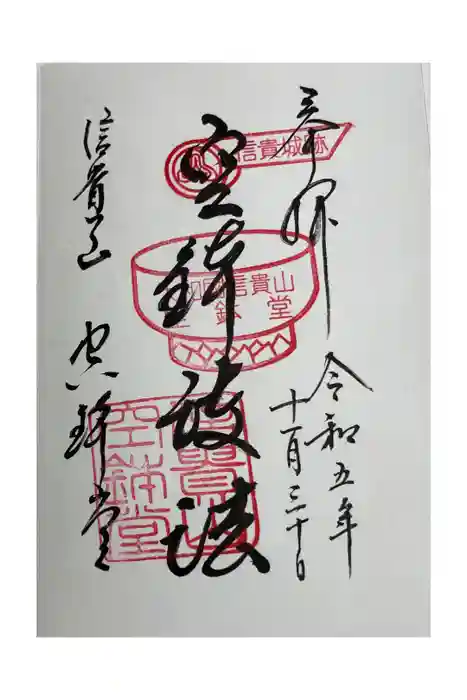 奉拝
令和五年
十一月三十日
信貴城跡
空鉢護法
信貴山
鉢堂
信貴山
空鉢堂
信貴山
空鉢堂